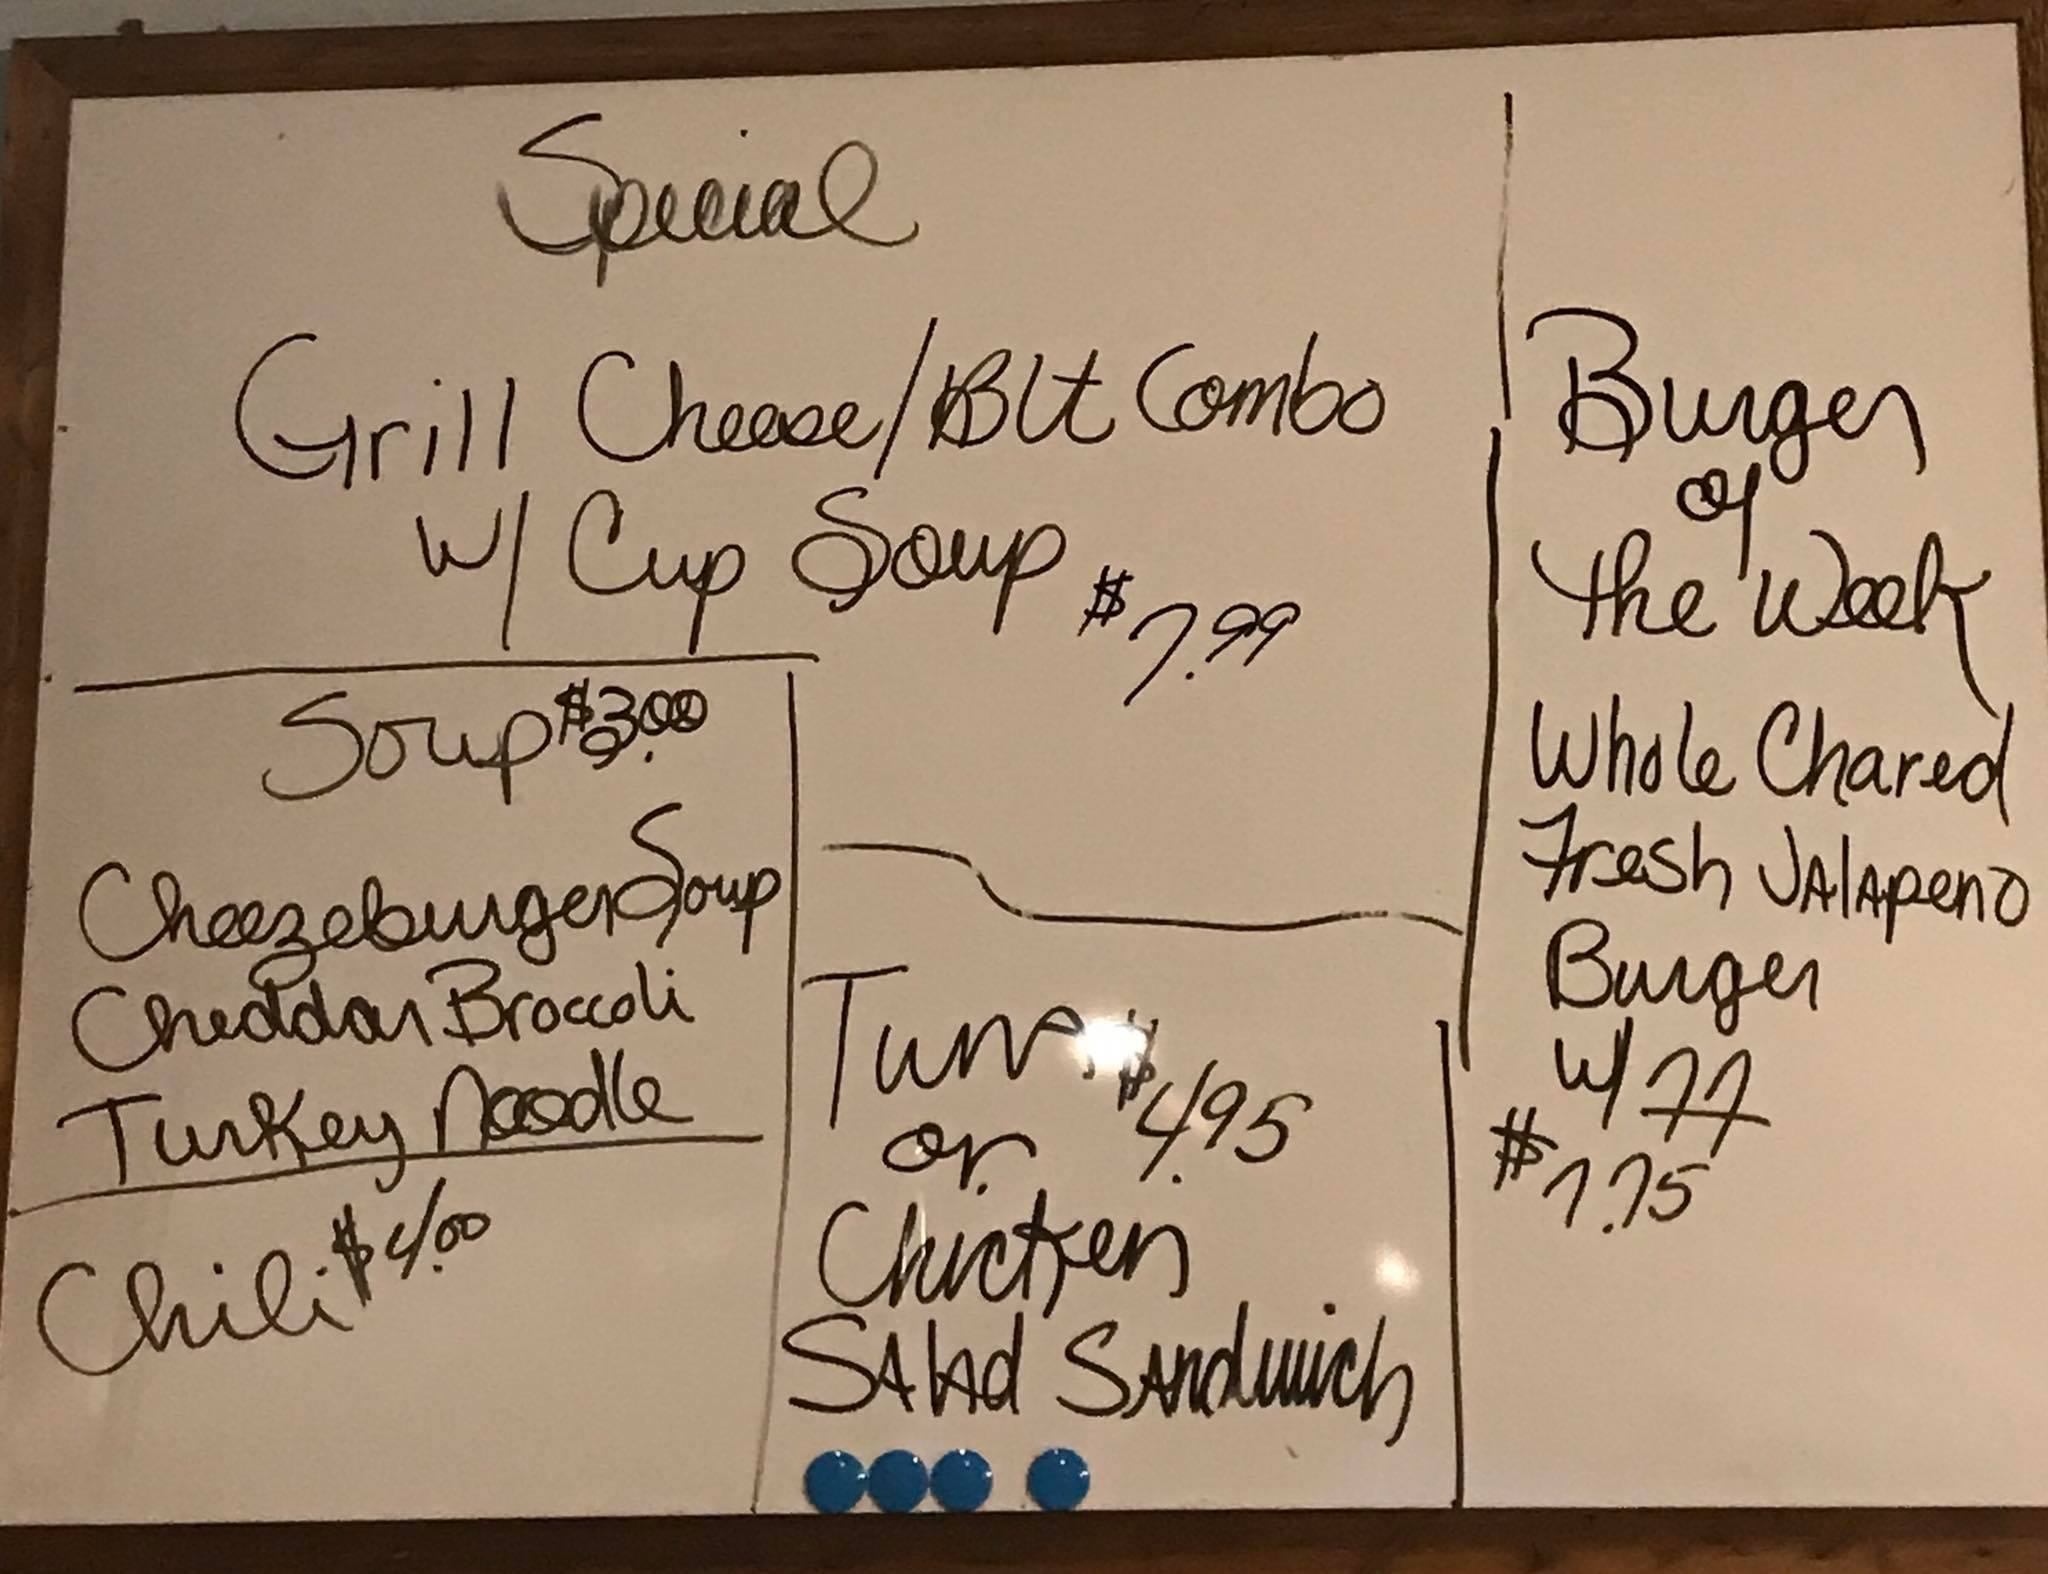 Special
Grill Cheese/Blt Combo
w/ Cup Soup $7.99
Soup $3.00
Cheezeburger Soup
Cheddar Broccoli
Turkey Noodle
Chili $4.00
Tuna $4.95
or
Chicken
Salad Sandwich
Burger
of
the Week
Whole Chared
Fresh Jalapeno
Burger
w/ FF
$7.75